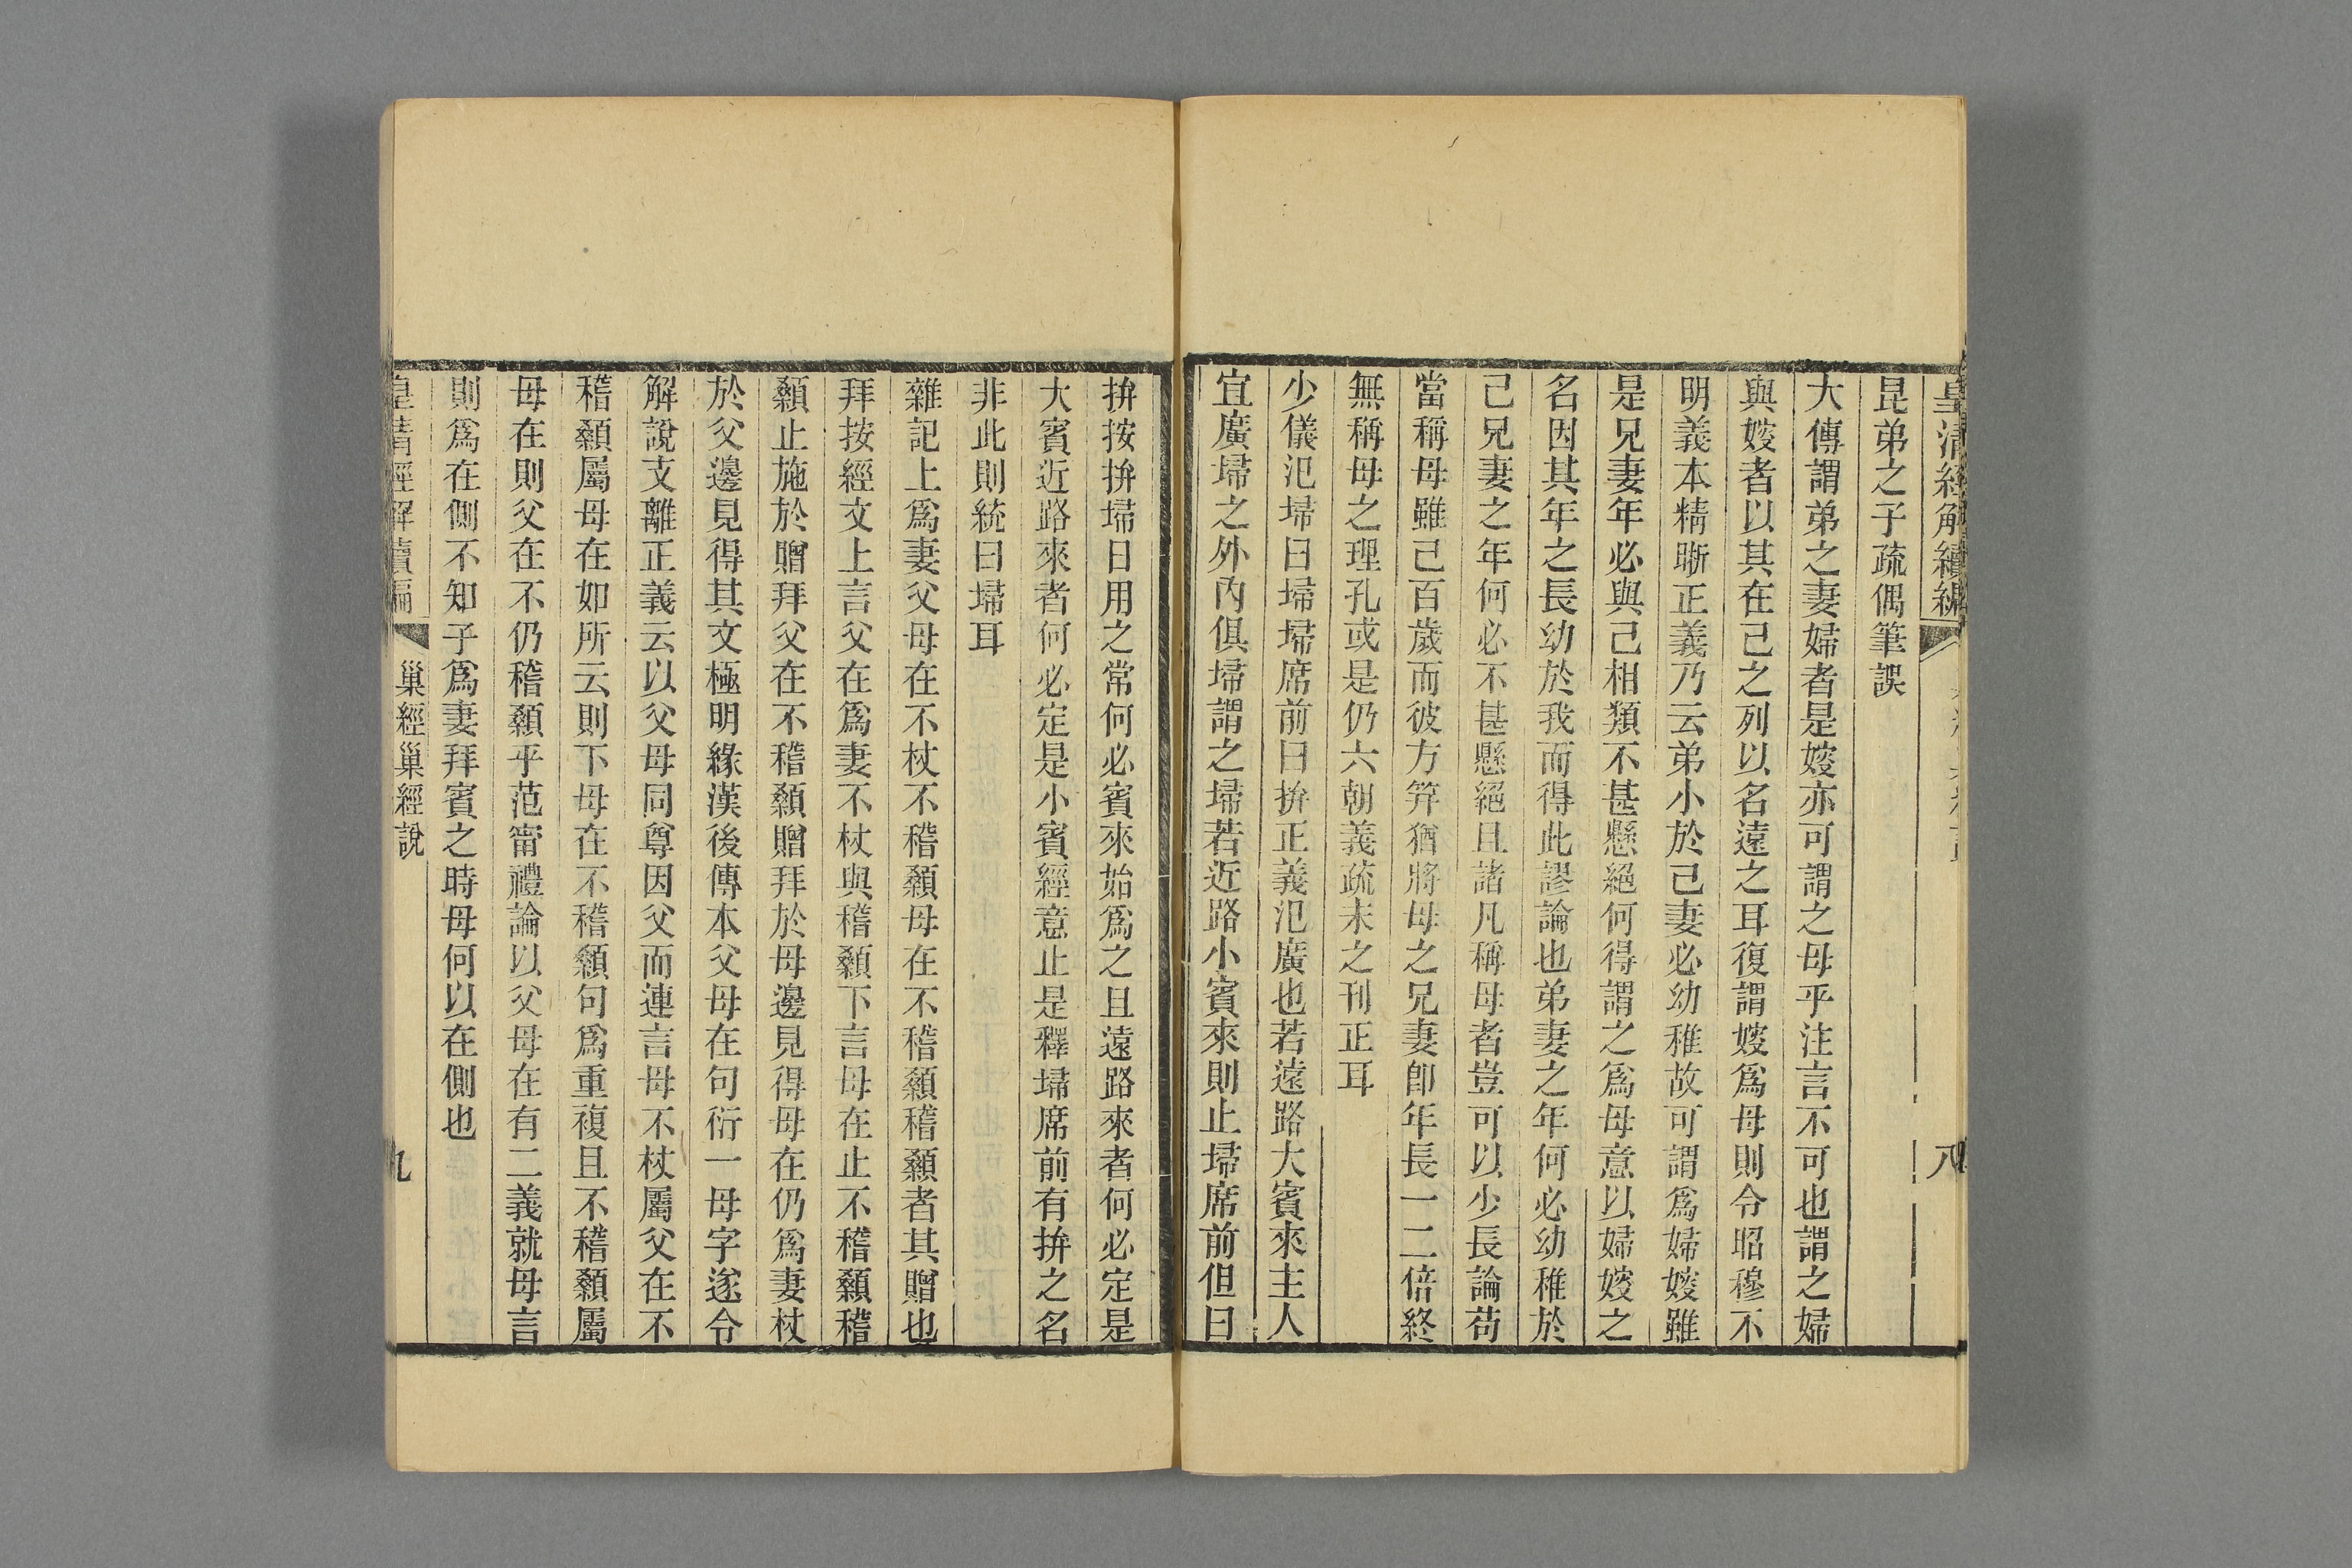 皇清經解續編
八
昆弟之子疏偶筆誤
大傳謂弟之妻婦者是嫂亦可謂之母乎注言不可也謂之婦
與嫂者以其在己之列以名遠之耳復謂嫂爲母則令昭穆不
明義本精晰正義乃云弟小於己妻必幼稚故可謂爲婦嫂雖
是兄妻年必與己相類不甚懸絕何得謂之爲母意以婦嫂之
名因其年之長幼於我而得此謬論也弟妻之年何必幼稚於
己兄妻之年何必不甚懸絕且諸凡稱母者豈可以少長論苟
當稱母雖己百歲而彼方笄猶將母之兄妻卽年長一二倍終
無稱母之理孔或是仍六朝義疏未之刊正耳
少儀氾埽曰埽埽席前曰拚正義氾廣也若遠路大賓來主人
宜廣埽之外內俱埽謂之埽若近路小賓來則止埽席前但曰
拚按拚埽日用之常何必賓來始爲之且遠路來者何必定是
大賓近路來者何必定是小賓經意止是釋埽席前有拚之名
非此則統曰埽耳
雜記上爲妻父母在不杖不稽顙母在不稽顙稽顙者其贈也
拜按經文上言父在爲妻不杖與稽顙下言母在止不稽顙稽
顙止施於贈拜父在不稽顙贈拜於母邊見得母在仍爲妻杖
於父邊見得其文極明緣漢後傳本父母在句衍一母字遂令
解說支離正義云以父母同尊因父而連言母不杖屬父在不
稽顙屬母在如所云則下母在不稽顙句爲重複且不稽顙屬
母在則父在不仍稽顙乎范甯禮論以父母在有二義就母言
則爲在側不知子爲妻拜賓之時母何以在側也
皇清經解續編
巢經巢經說
九